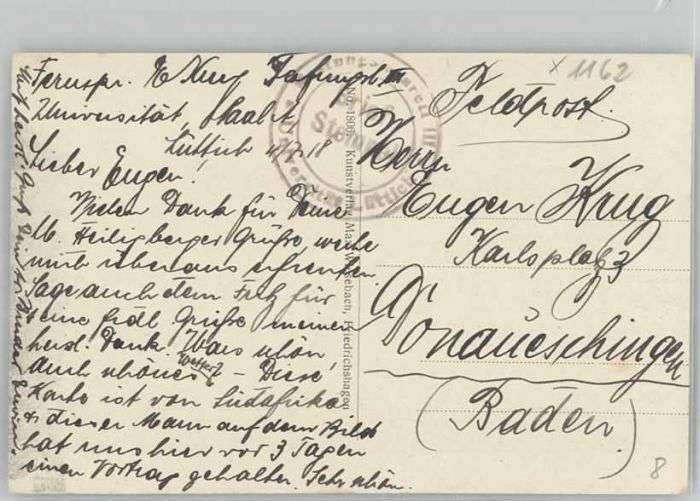 Fernspr. E. Krug
Universität
Lüttich 4.7.18
Lieber Eugen!
Vielen Dank für Deine
lb. Heiligberger Grüße, welche
mich überaus erfreuten.
Sage auch dem Fritz für
seine frdl. Grüße meinen
herzl. Dank. Was schön
auch schönes Wetter? - Diese
Karte ist von Südafrika
& dieser Mann auf dem Bild
hat uns hier vor 3 Tagen
einen Vortrag gehalten. Sehr schön.
Feldpost.
Herrn
Eugen Krug
Karlsplatz 3
Donaueschingen
(Baden)
x 1162
8
Kunstverlag Max
Friedrichshagen
III